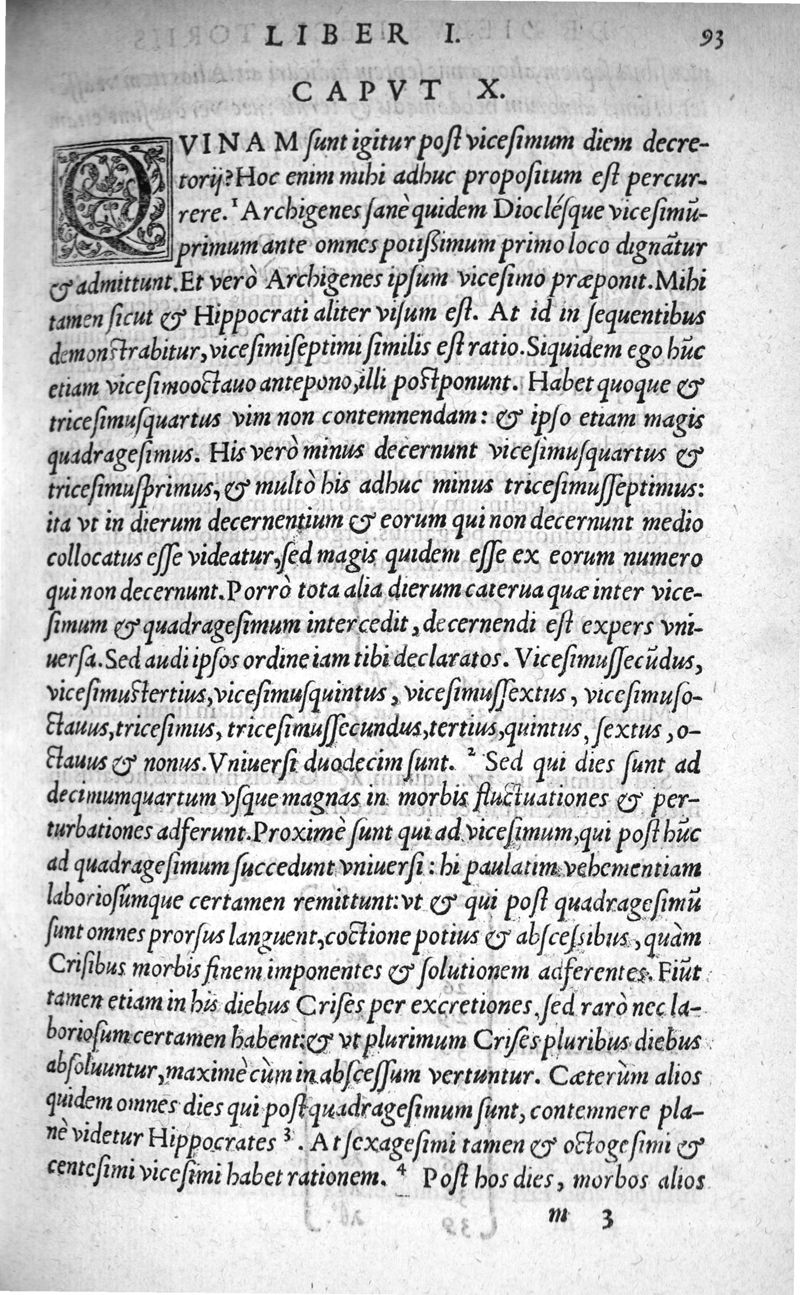 LIBER I. 93
CAPVT X.
QVINAM sunt igitur post vicesimum diem decre-
torij? Hoc enim mihi adhuc propositum est percur-
rere. ¹ Archigenes sanè quidem Dioclésque vicesimū-
primum ante omnes potissimum primo loco dignātur
& admittunt. Et verò Archigenes ipsum vicesimo præponit. Mihi
tamen sicut & Hippocrati aliter visum est. At id in sequentibus
demonstrabitur, vicesimiseptimi similis est ratio. Siquidem ego hūc
etiam vicesimooctauo antepono, illi postponunt. Habet quoque &
tricesimusquartus vim non contemnendam: & ipso etiam magis
quadragesimus. His verò minus decernunt vicesimusquartus &
tricesimusprimus, & multò his adhuc minus tricesimusseptimus:
ita vt in dierum decernentium & eorum qui non decernunt medio
collocatus esse videatur, sed magis quidem esse ex eorum numero
qui non decernunt. Porrò tota alia dierum caterua quæ inter vice-
simum & quadragesimum intercedit, decernendi est expers vni-
uersa. Sed audi ipsos ordine iam tibi declaratos. Vicesimussecūdus,
vicesimustertius, vicesimusquintus, vicesimussextus, vicesimuso-
ctauus, tricesimus, tricesimussecundus, tertius, quintus, sextus, o-
ctauus & nonus. Vniuersi duodecim sunt. ² Sed qui dies sunt ad
decimumquartum vsque magnas in morbis fluctuationes & per-
turbationes adferunt. Proximè sunt qui ad vicesimum, qui post hūc
ad quadragesimum succedunt vniuersi: hi paulatim vehementiam
laboriosúmque certamen remittunt: vt & qui post quadragesimū
sunt omnes prorsus languent, coctione potius & abscessibus, quàm
Crisibus morbis finem imponentes & solutionem adferentes. Fiūt
tamen etiam in his diebus Crises per excretiones, sed rarò nec la-
boriosum certamen habent: & vt plurimum Crises pluribus diebus
absoluuntur, maximè cùm in abscessum vertuntur. Cæterùm alios
quidem omnes dies qui post quadragesimum sunt, contemnere pla-
nè videtur Hippocrates ³. At sexagesimi tamen & octogesimi &
centesimi vicesimi habet rationem. ⁴ Post hos dies, morbos alios
m 3